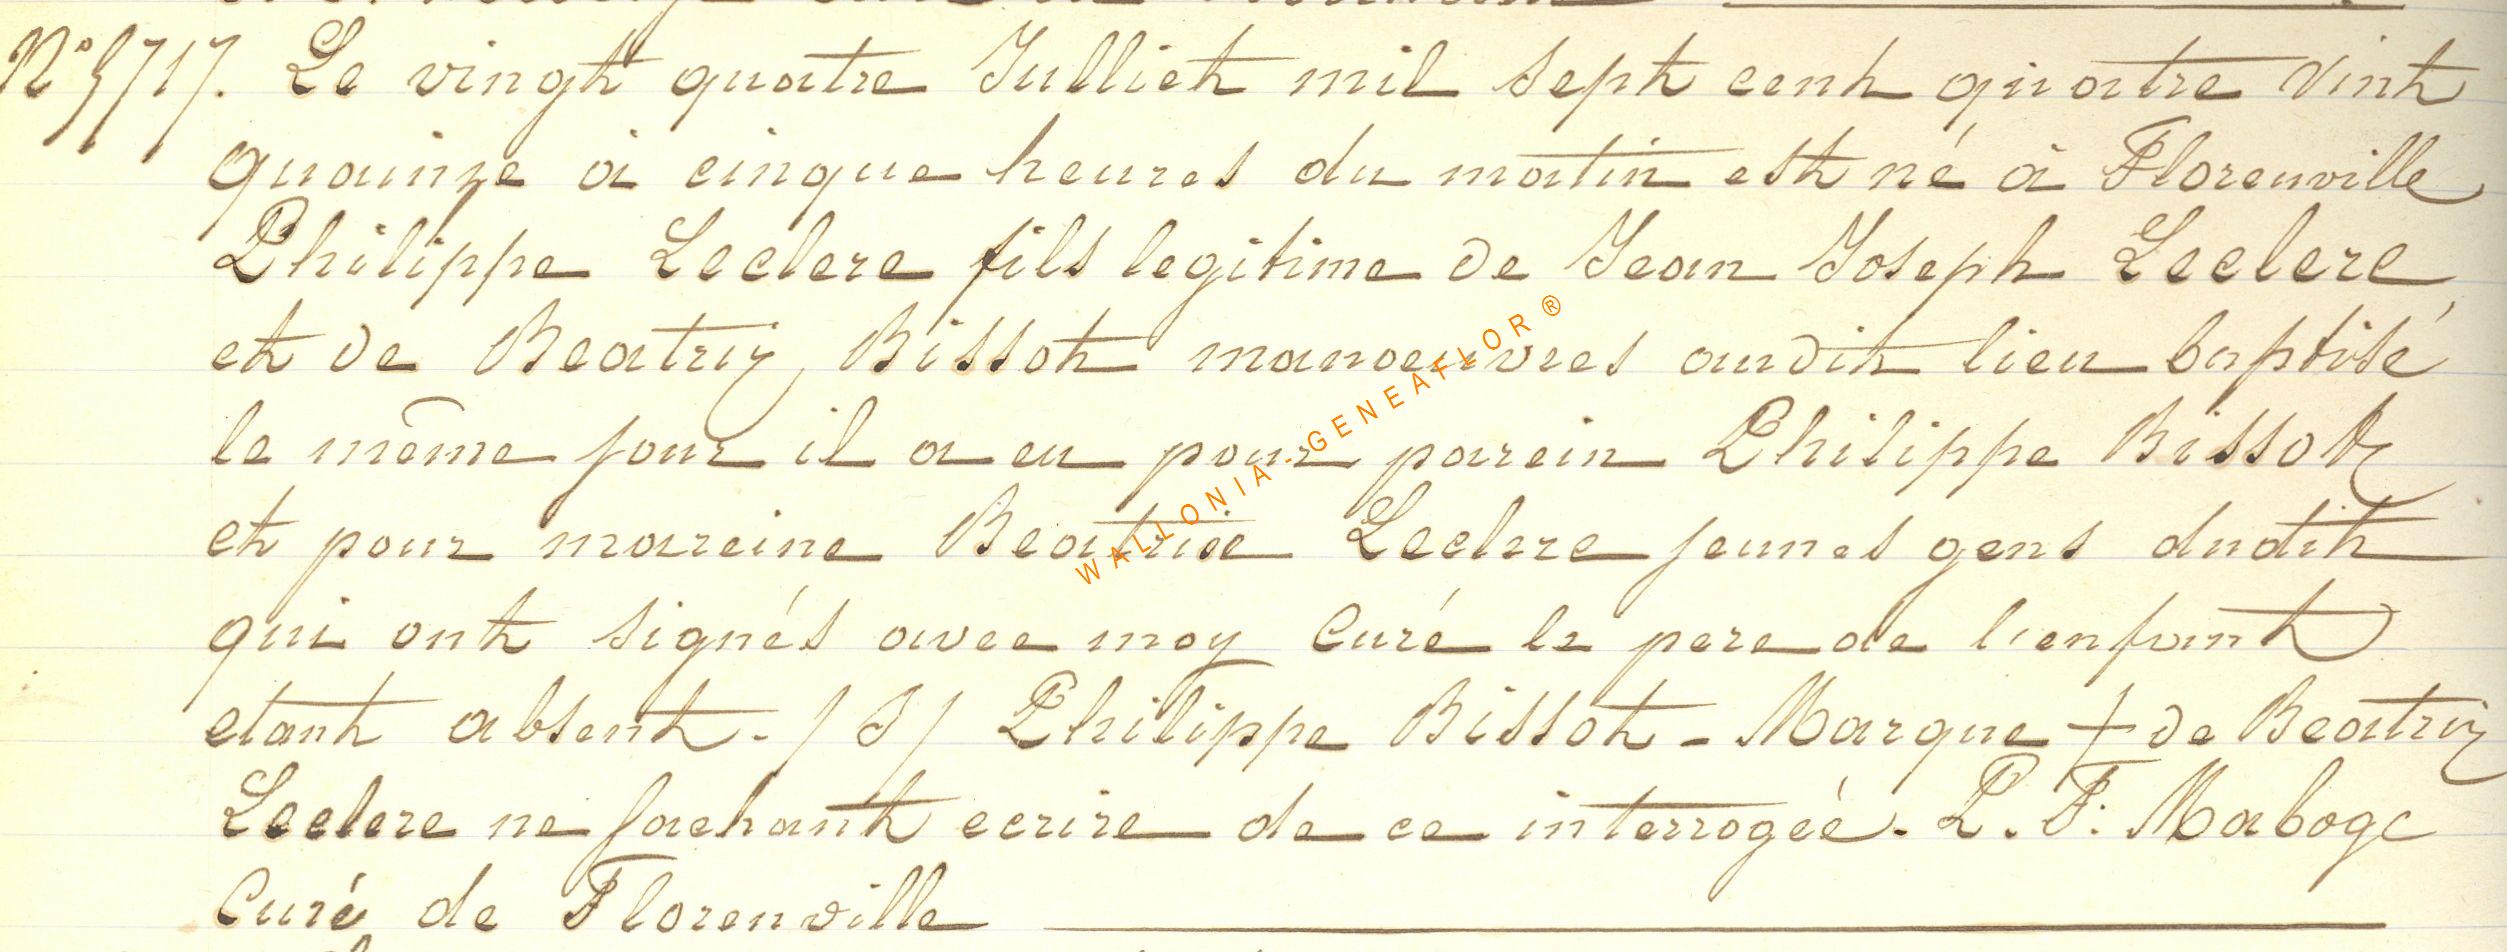 N° 5717. Le vingt quatre Julliet mil sept cent quatre vint
quainze à cinque heures du matin est né à Florenville
Philippe Leclere fils legitime de Jean Joseph Leclere
et de Beatrix Bissot manoeuvres audit lieu baptisé
le même jour il a eu pour parein Philippe Bissot
et pour mareine Beatrix Leclere jeunes gens dudit
qui ont signés avec moy Curé le pere de l'enfant
etant absent. /S/ Philippe Bissot - Marque + de Beatrix
Leclere ne sachant ecrire de ce interrogéé. P. F. Maboge
Curé de Florenville
WALLONIA-GENEAFLOR ®